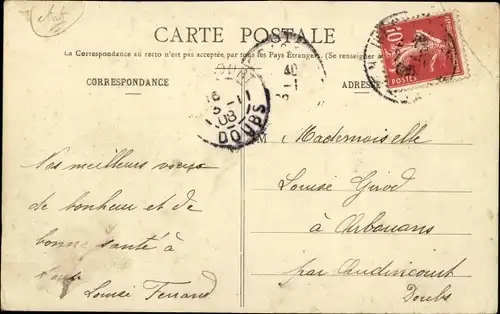 CARTE POSTALE
La Correspondance au recto n'est pas acceptée par tous les Pays Étrangers. (Se renseigner a
CORRESPONDANCE
ADRESSE
10c
POSTES
16
5-11
08
DOUBS
40
M
Mademoiselle
Louise Girod
à Arbouans
par Audincourt
Doubs
Nos meilleurs voeux
de bonheur et de
bonne santé à
Louise Ferrand